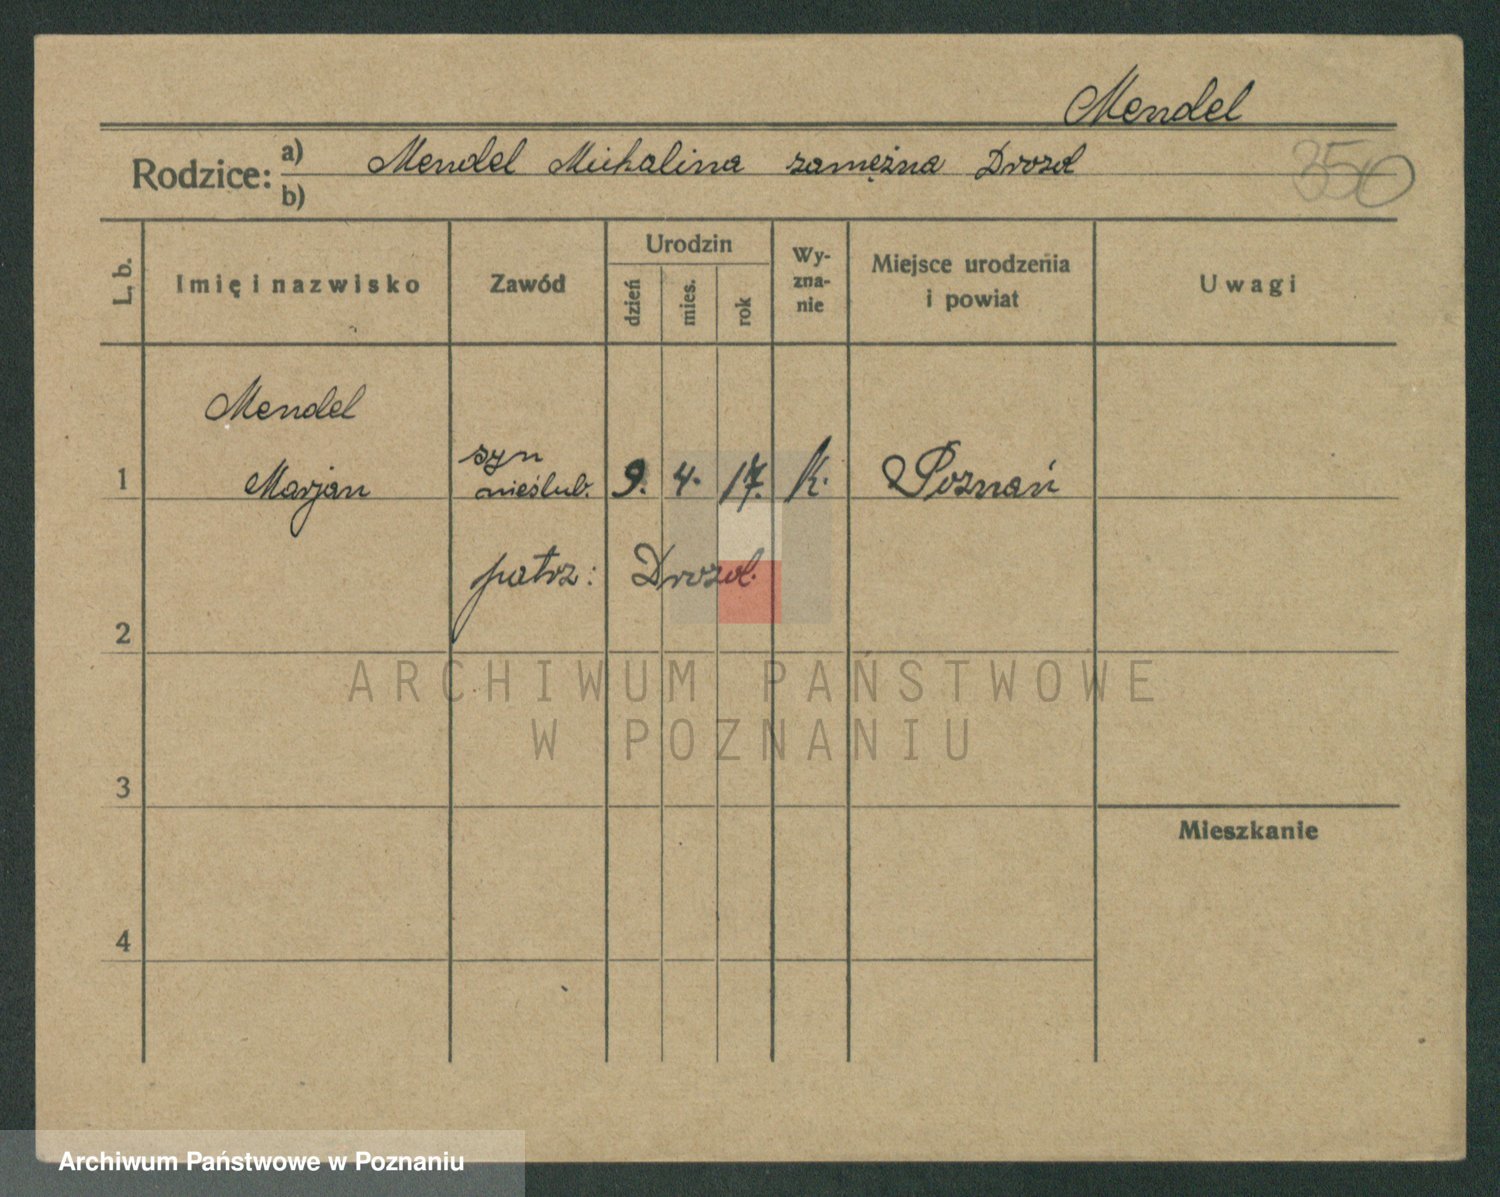 Mendel
Rodzice: a) Mendel Michalina zamężna Drozd
b)
350
L. b. Imię i nazwisko Zawód Urodzin dzień mies. rok Wyznanie Miejsce urodzenia i powiat Uwagi
Mendel
1 Marjan syn nieślub. 9. 4. 17. k. Poznań
patrz: Drozd.
2
3
Mieszkanie
4
ARCHIWUM PAŃSTWOWE
W POZNANIU
Archiwum Państwowe w Poznaniu